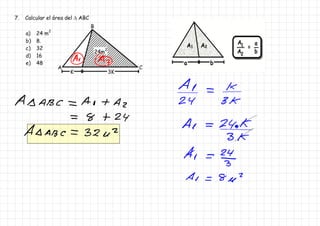 7. Calcular el área del Δ ABC
a) 24 m²
b) 8
c) 32
d) 16
e) 48
B
24m²
A1
A2
A
K
3K
C
A1 A2
a b
A1/A2 = a/b
A Δ ABC = A1 + A2
= 8 + 24
A Δ ABC = 32 u²
A1/24 = K/3K
A1 = 24.K/3.K
A1 = 24/3
A1 = 8 u²